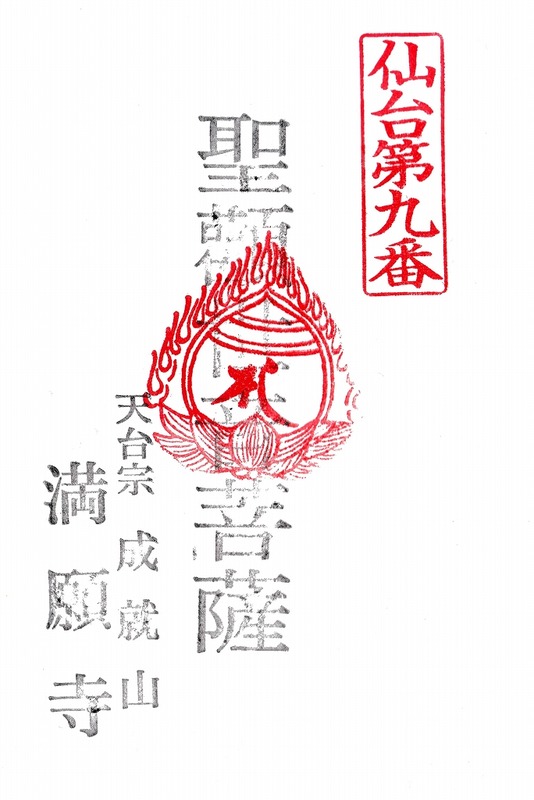 仙台第九番
聖觀世音菩薩
天台宗 成就山
満願寺